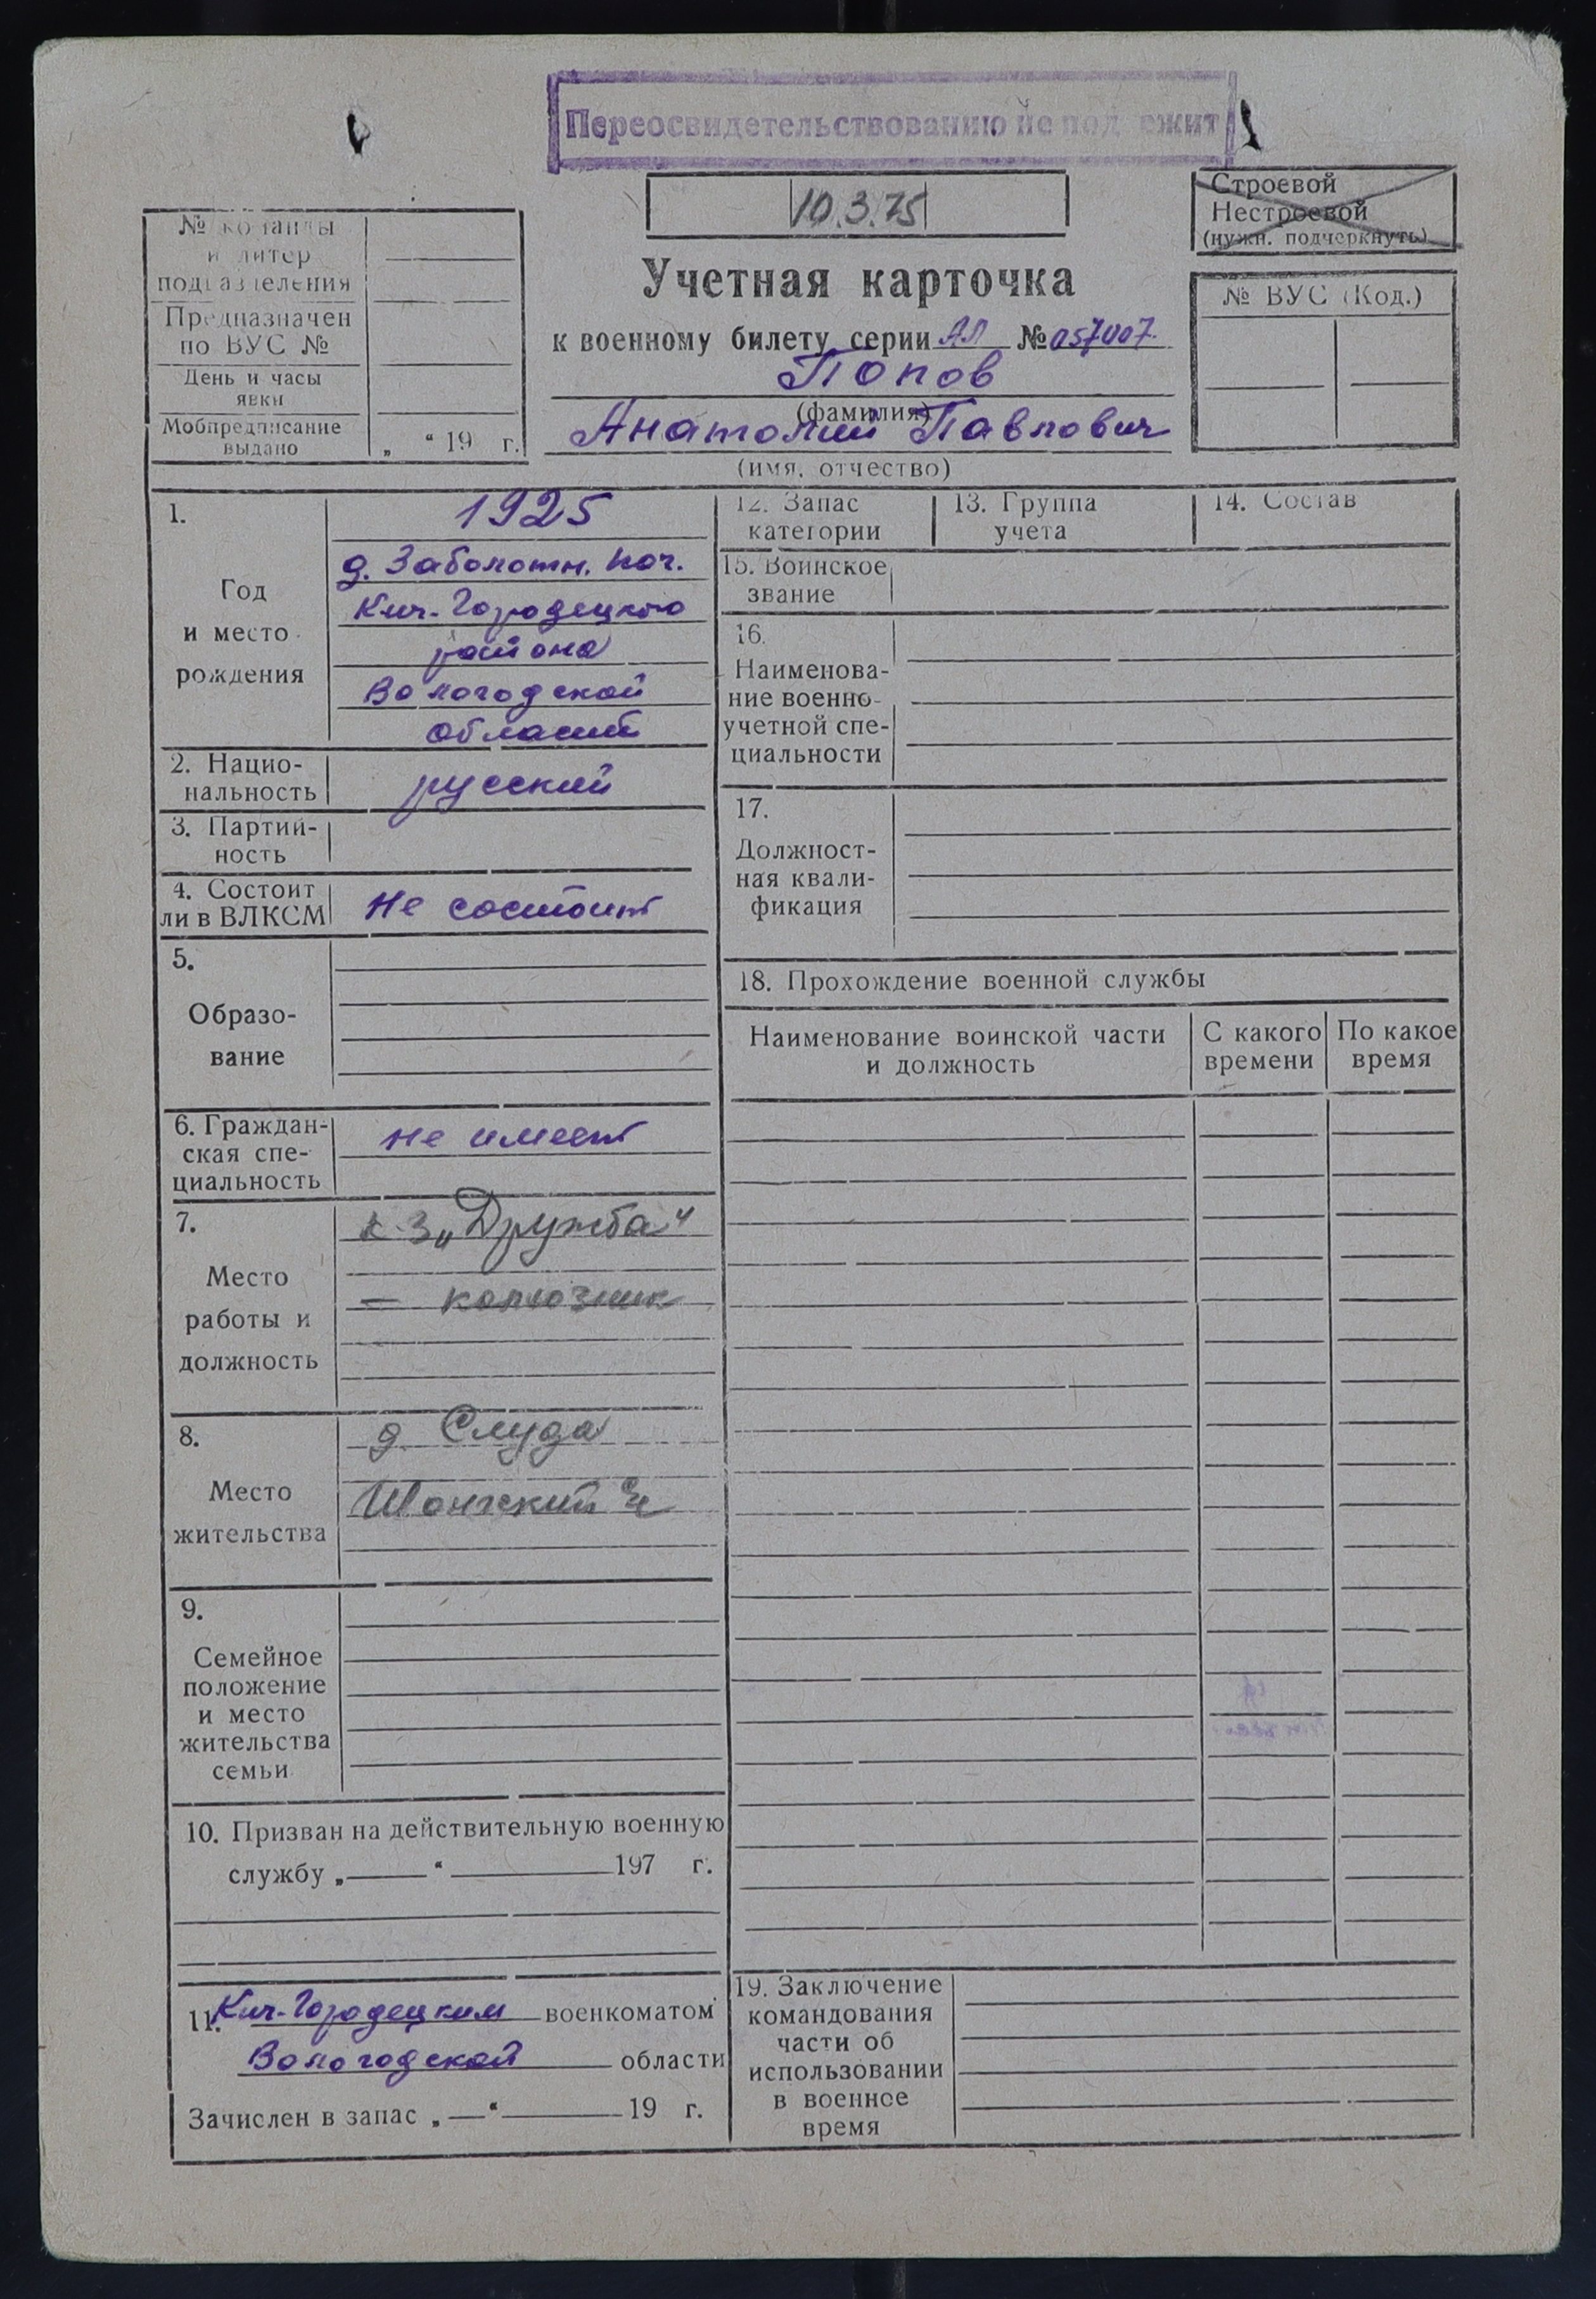 Переосвидетельствованию не подлежит
10.3.75
Строевой
Нестроевой
(нужн. подчеркнуть)
№ команды
и литер
подразделения
Предназначен
по ВУС №
День и часы
явки
Мобпредписание
выдано
„ “ 19 г.
Учетная карточка
к военному билету серии АЛ № 057007
Попов
(фамилия)
Анатолий Павлович
(имя, отчество)
№ ВУС (Код.)
1.
Год
и место
рождения
1925
д. Заболотн. поч.
Кич-Городецкого
района
Вологодской
области
2. Нацио-
нальность
русский
3. Партий-
ность
4. Состоит
ли в ВЛКСМ
Не состоит
5.
Образо-
вание
6. Граждан-
ская спе-
циальность
не имеет
7.
Место
работы и
должность
к-з „Дружба“
— колхозник
8.
Место
жительства
д. Слуда
Шонгский
9.
Семейное
положение
и место
жительства
семьи
10. Призван на действительную военную
службу „ “ 197 г.
11. Кич-Городецким военкоматом
Вологодской области
Зачислен в запас „—“ 19 г.
12. Запас
категории
13. Группа
учета
14. Состав
15. Воинское
звание
16.
Наименова-
ние военно-
учетной спе-
циальности
17.
Должност-
ная квали-
фикация
18. Прохождение военной службы
Наименование воинской части
и должность
С какого
времени
По какое
время
19. Заключение
командования
части об
использовании
в военное
время